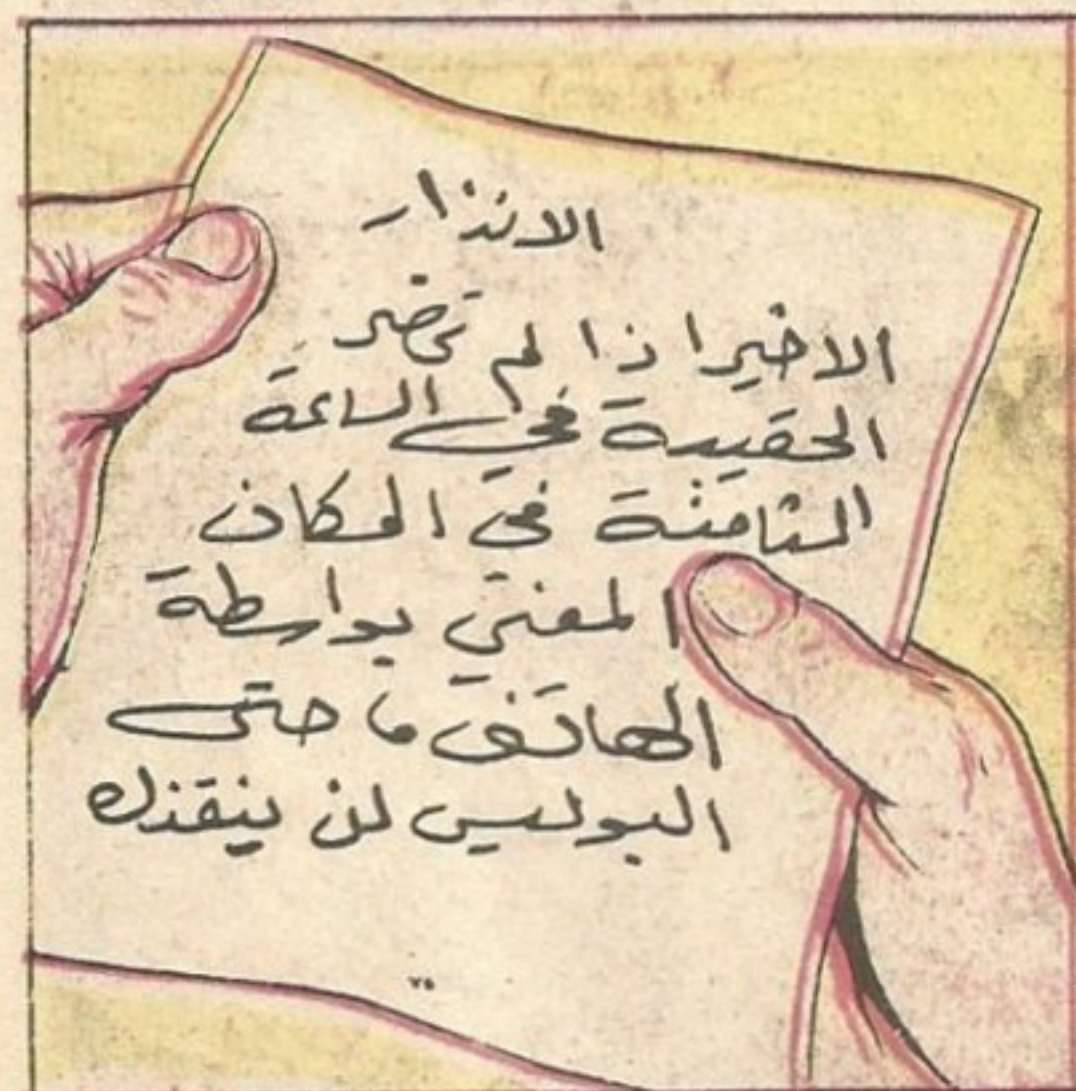 الانذار
الاخير اذا لم تحضر
الحقيبة في الساعة
الثامنة في المكان
المعني بواسطة
الهاتف، حتى
البوليس لن ينقذك
٧٥